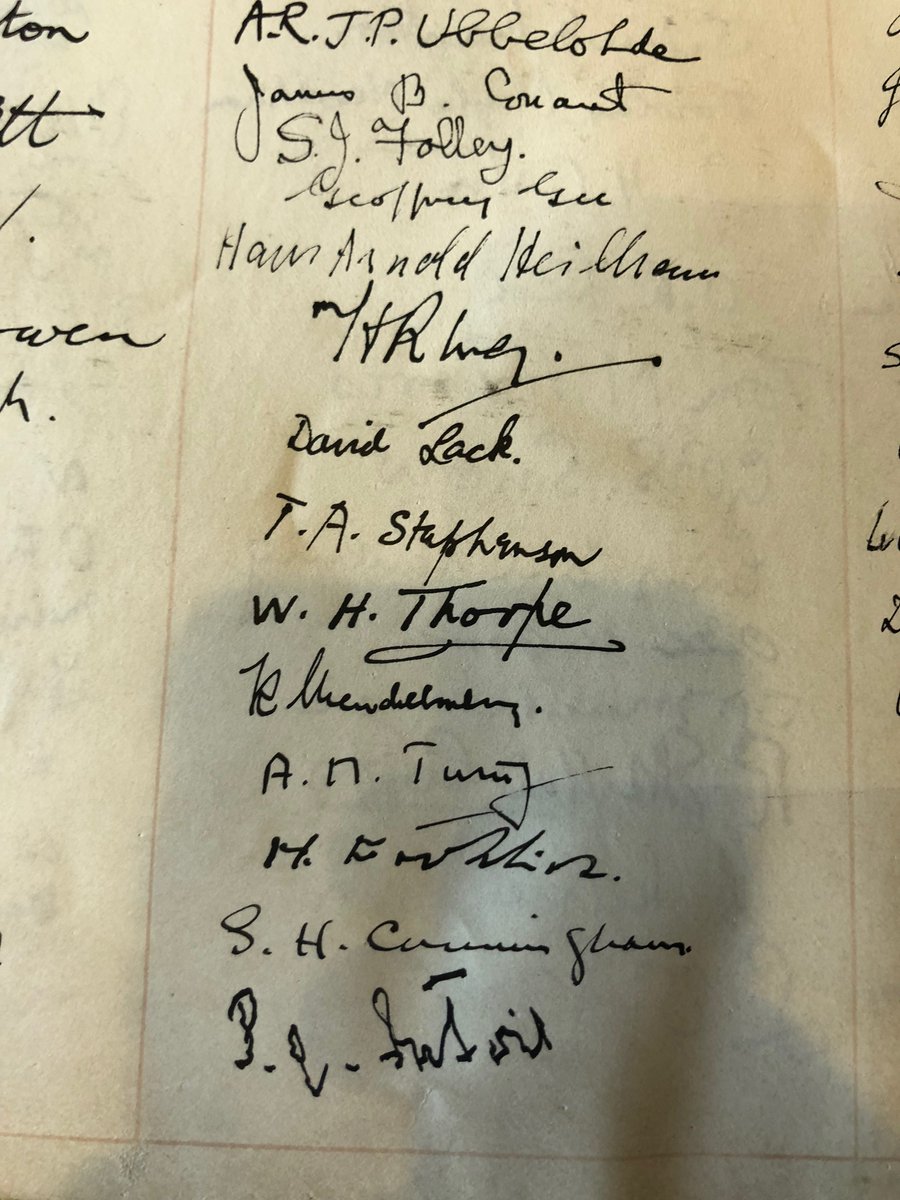 ton
A.R.J.P. Ubbelohde
James B. Conant
tt
S.J. Folley.
Geoffrey Gee
Hans Arnold Heilbronn
owen
h.
David Lack.
T.A. Stephenson
W. H. Thorpe
K Mendelssohn.
A. M. Turing
H. Fröhlich.
G. H. Cunningham